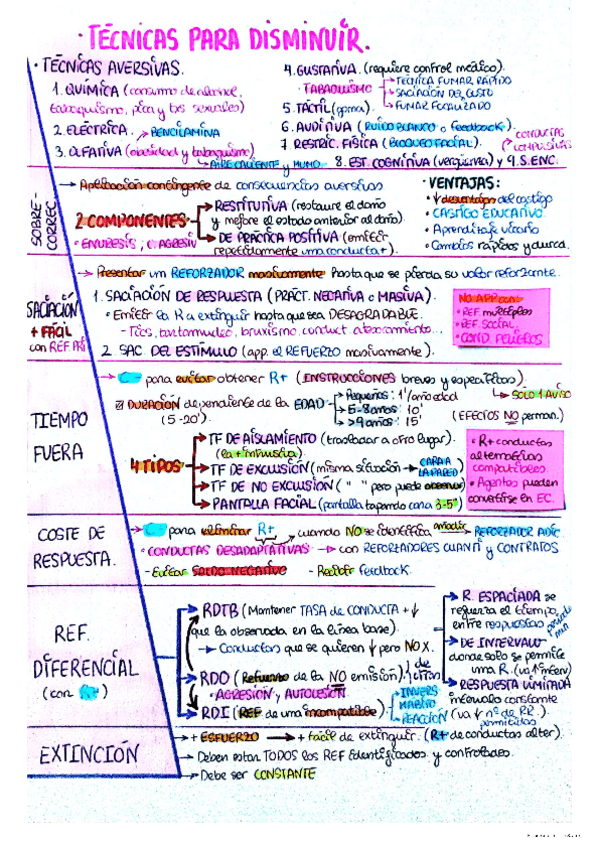 · TÉCNICAS PARA DISMINUIR.
· TÉCNICAS AVERSIVAS.
1. QUÍMICA (consumo de alcohol,
tabaquismo, pica y tos sexuales)
2. ELÉCTRICA. → PENCILAMINA
3. OLFATIVA (obesidad y tabaquismo)
→ AIRE CALIENTE y HUMO.
4. GUSTATIVA. (requiere control médico).
· TABAQUISMO → TÉCNICA FUMAR RÁPIDO
→ SACIACIÓN DEL GUSTO
→ FUMAR FOCALIZADO
5. TÁCTIL (goma).
6. AUDITIVA (RUIDO BLANCO o feedback).
7. RESTRIC. FÍSICA (BLOQUEO FACIAL). CONDUCTAS COMPULSIVAS
8. EST. COGNITIVA (vergüenza) y 9. S. ENC.
SOBRE-
CORREC.
→ Aplicación contingente de consecuencias aversivas
2 COMPONENTES
→ RESTITUTIVA (restaure el daño
y mejore el estado anterior al daño).
→ DE PRÁCTICA POSITIVA (emitir
repetidamente una conducta+).
· ENURESIS ; C AGRESIV
· VENTAJAS:
· ↓ desventajas del castigo
· CASTIGO EDUCATIVO.
· Aprendizaje vicario
· Cambios rápidos y durad.
SACIACIÓN
+ FÁCIL
con REF
→ Presentar un REFORZADOR masivamente hasta que se pierda su valor reforzante.
1. SACIACIÓN DE RESPUESTA (PRACT. NEGATIVA o MASIVA).
· Emitir la R a extinguir hasta que sea DESAGRADABLE.
- Tics, tartamudeo, bruxismo, conduct atesoramiento...
2 SAC DEL ESTÍMULO (app. el REFUERZO masivamente).
· REF múltiples
· REF. SOCIAL.
· COND. PELIGROS
TIEMPO
FUERA
→ C- para evitar obtener R+ (INSTRUCCIONES breves y específicas).
→ SOLO 1 AVISO
DURACIÓN dependiente de la EDAD
(5-20').
→ Pequeños: 1'/año edad
→ 5-8 años: 10'
→ >9 años: 15'
(EFECTOS NO perman.)
4 TIPOS
→ TF DE AISLAMIENTO (trasladar a otro lugar).
(la + intrusiva)
→ TF DE EXCLUSIÓN (misma situación → CARA A LA PARED)
→ TF DE NO EXCLUSIÓN ( " " pero puede observar)
→ PANTALLA FACIAL (pantalla tapando cara 3-5'')
· R+ conductas
alternativas
compatibles.
· Agentes pueden
convertirse en EC.
COSTE DE
RESPUESTA.
→ C- para eliminar R+ cuando NO se identifica añadir REFORZADOR ADIC.
· CONDUCTAS DESADAPTATIVAS → con REFORZADORES CUANTI y CONTRATOS
- Evitar SALDO NEGATIVO - Recibir feedback.
REF.
DIFERENCIAL
(con R+)
→ RDTB (Mantener TASA de CONDUCTA + ↓
que la observada en la línea base).
→ Conductas que se quieren ↓ pero NO X.
→ RDO (Refuerzo de la NO emisión).
· AGRESIÓN y AUTOLESIÓN
→ RDI (REF de una incompatible). → INVERS HÁBITO
→ REACCIÓN
→ R. ESPACIADA se
refuerza el tiempo
entre respuestas
→ DE INTERVALO
donde solo se permite
una R.
→ RESPUESTA LIMITADA
intervalo constante
(va ↓ nº de RR
permitidas).
EXTINCIÓN
→ + ESFUERZO → + fácil de extinguir. (R+ de conductas alter).
→ Deben estar TODOS los REF identificados y controlados
→ Debe ser CONSTANTE